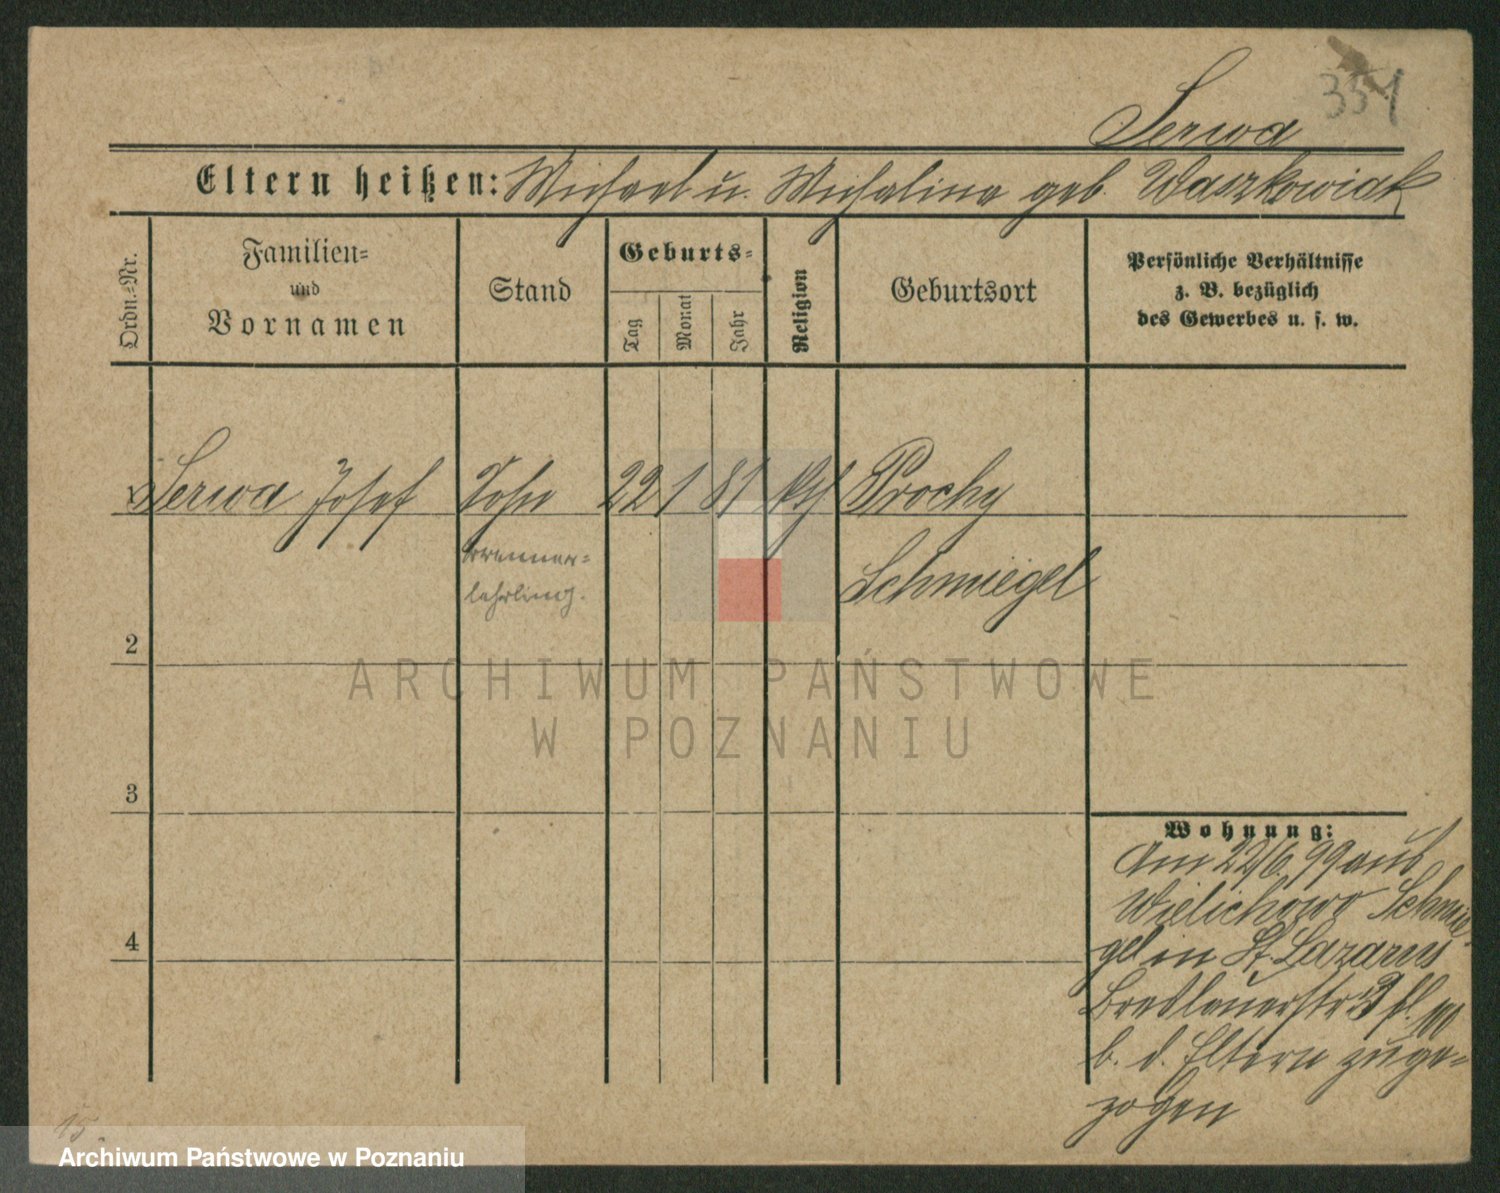 351
Serwa
Eltern heißen: Michael u. Michalina geb. Waszkowiak
Ordn.-Nr.
Familien-
und
Vornamen
Stand
Geburts-
Tag
Monat
Jahr
Religion
Geburtsort
Persönliche Verhältnisse
z. B. bezüglich
des Gewerbes u. s. w.
1 Serwa Josef Sohn 22 1 81 kth Prochy
Brenner-
lehrling.
Schmiegel
2
3
4
Wohnung:
Am 22/6. 99 aus
Wielichowo Schmie-
gel in St. Lazarus
Breslauerstr
b. d. Eltern zuge-
zogen
15.
ARCHIWUM PAŃSTWOWE
W POZNANIU
Archiwum Państwowe w Poznaniu